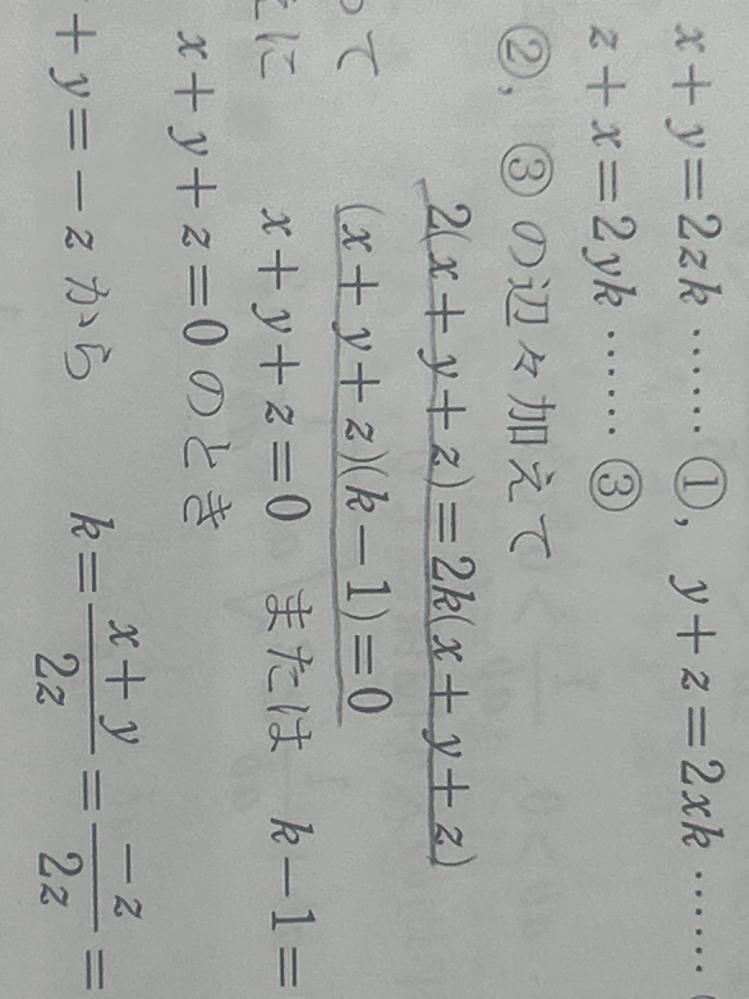 x+y=2zk ……①, y+z=2xk ……
z+x=2yk ……③
②, ③の辺々加えて
2(x+y+z)=2k(x+y+z)
って (x+y+z)(k-1)=0
に x+y+z=0 または k-1=
x+y+z=0のとき
+y=-zから k=\frac{x+y}{2z}=\frac{-z}{2z}=